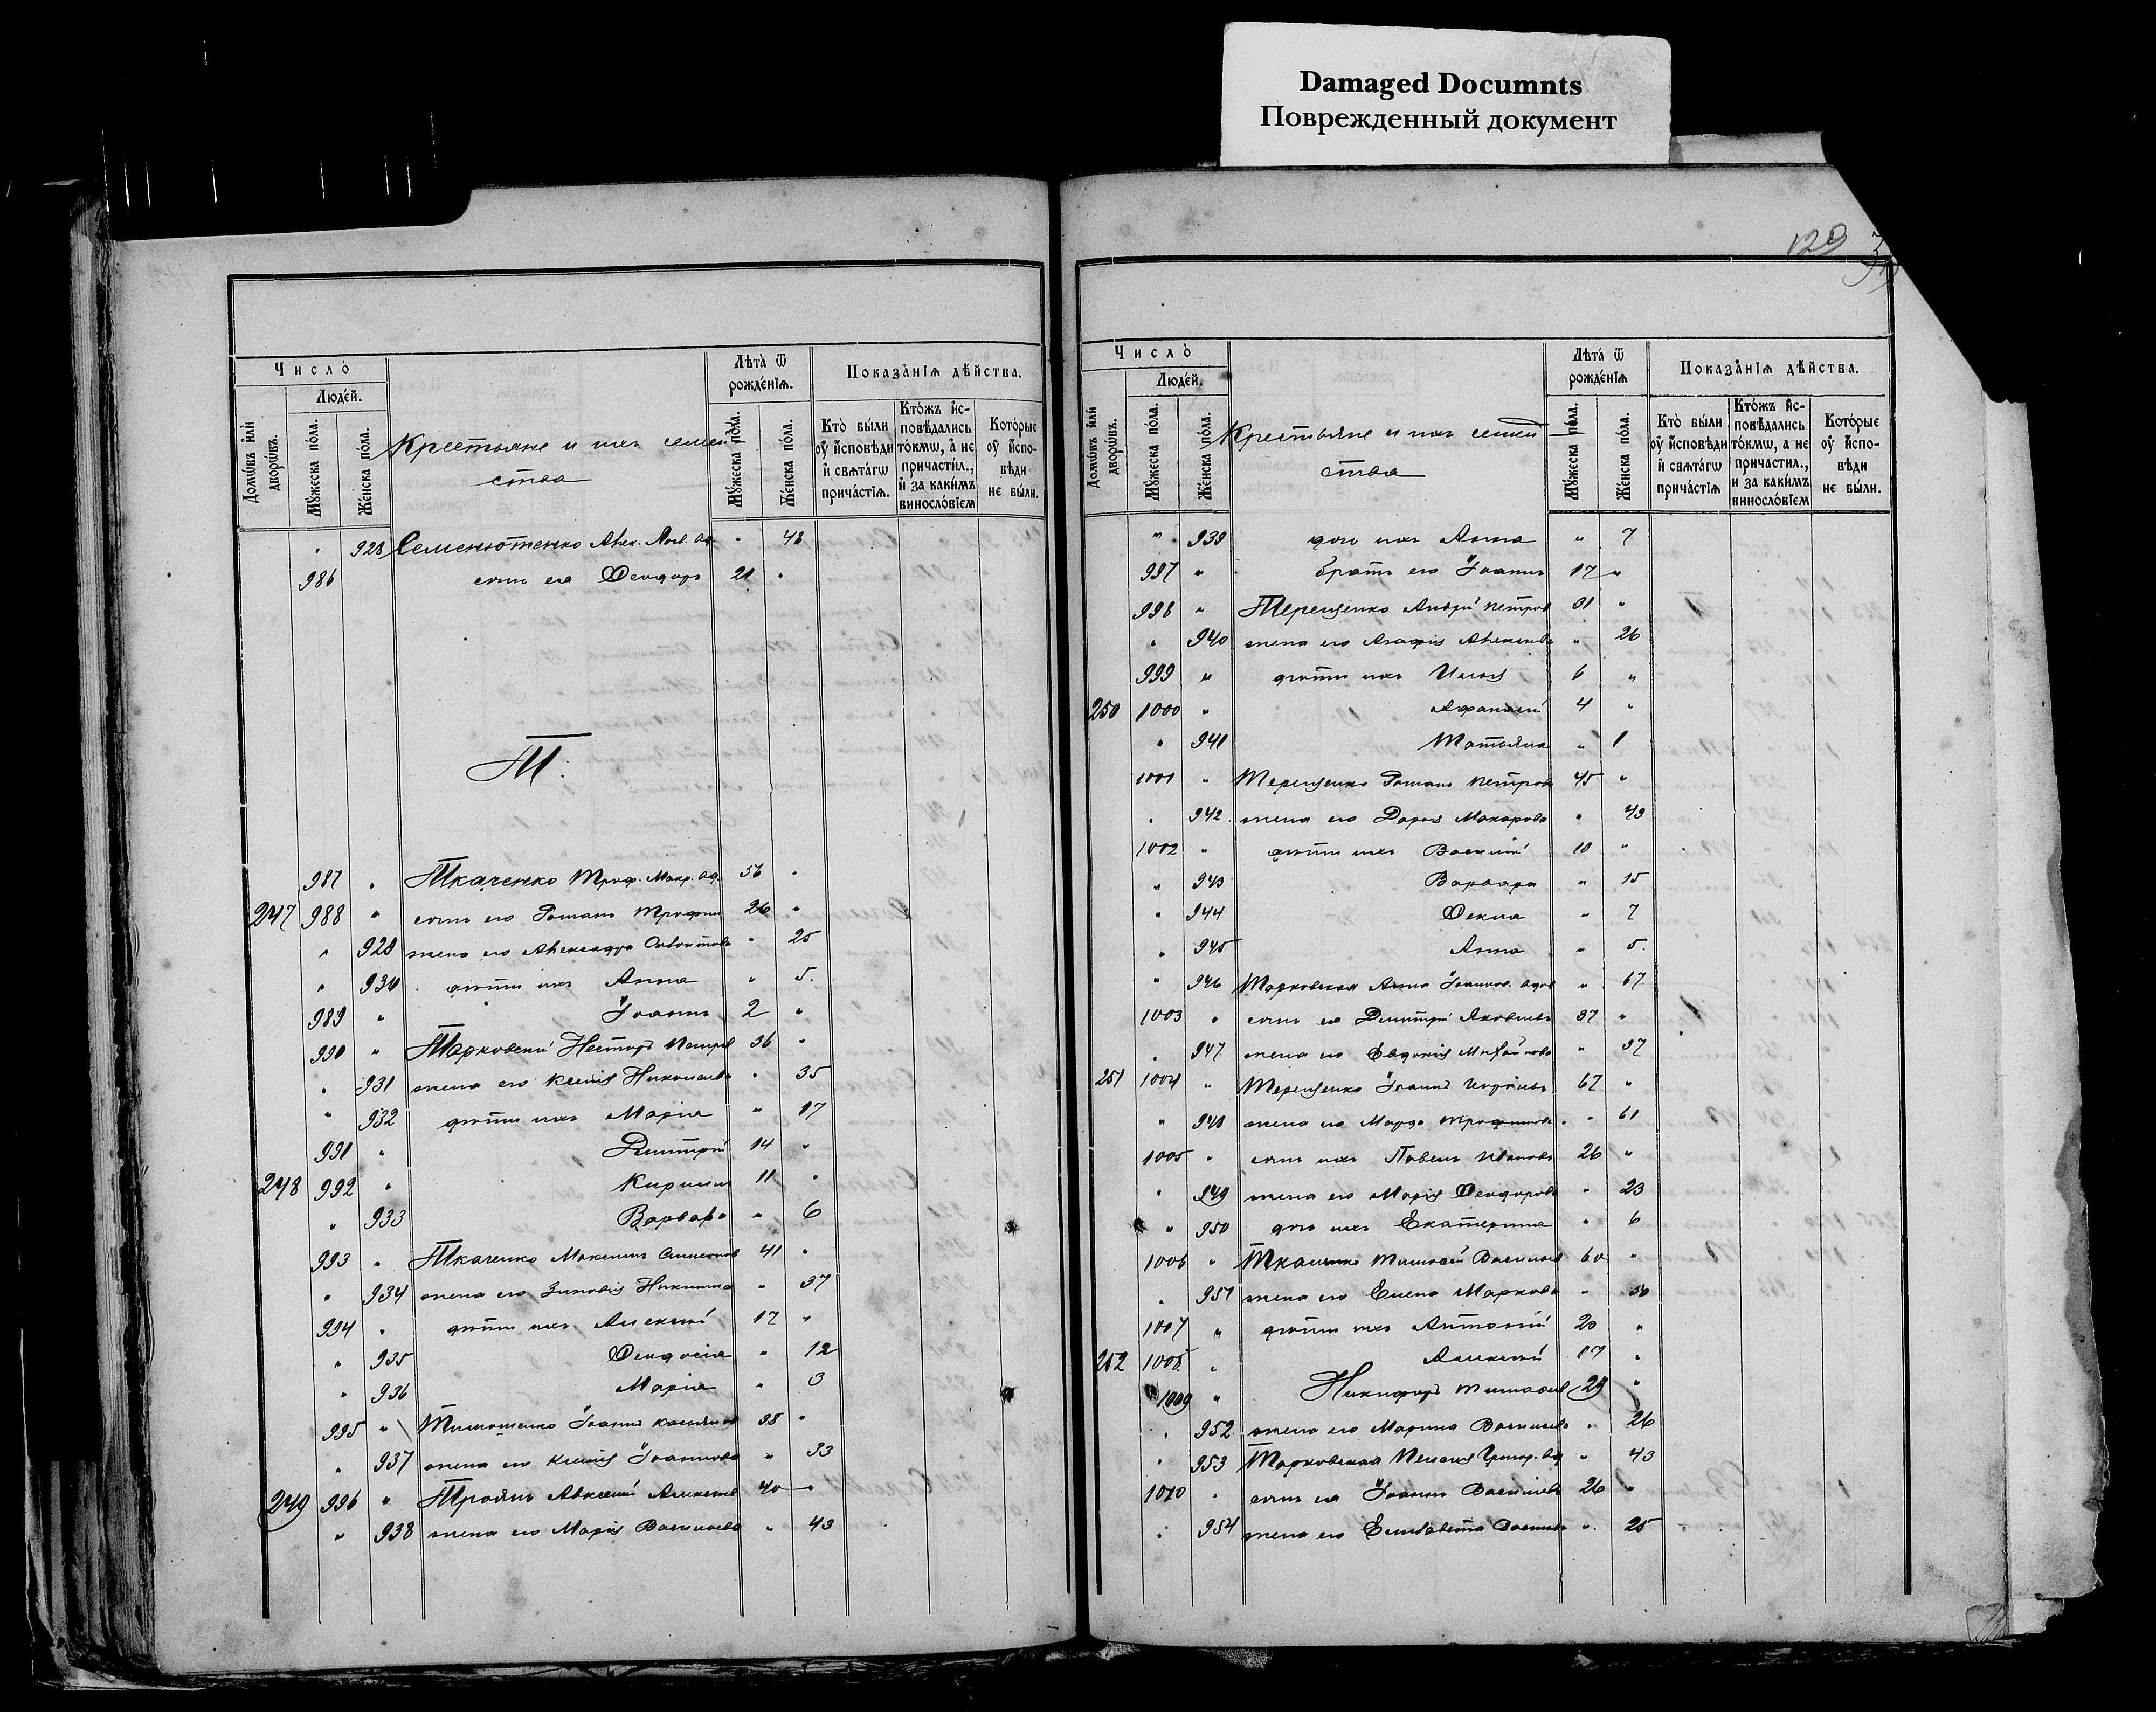 Damaged Documnts
Поврежденный документ
129
Число̀
Людéй.
Домѡ́въ и҆лѝ дворѡ́въ.
Мꙋ́жеска по́ла.
Же́нска по́ла.
Крестьяне и ихъ семей
ства
Лѣта̀ ѿ рожде́нїѧ.
Мꙋ́жеска по́ла.
Же́нска по́ла.
Показа̑нїѧ дѣ́йства.
Кто̀ бы́ли оу҆ и҆сповѣ́ди и҆ свѧта́гѡ прича́стїѧ.
Кто́жъ и҆сповѣ́дались то́кмѡ, а҆ не причасти́л., и҆ за каки́мъ винослóвїем
Кото́рые оу҆ и҆сповѣ́ди не бы́ли.
" 928 Семенютенко Алек. вд. " 48
986 сынъ ея Ѳеодоръ 21 "
Т.
987 " Ткаченко Троф. Макр. вд. 56 "
247 988 " сынъ его Романъ Трофим 26 "
" 929 жена его Александра " 25
" 930 дѣти ихъ Анна " 5.
989 " Іоаннъ 2 "
990 " Тарковскій Несторъ Петров 36 "
" 931 жена его Ксенія Николаева " 35
" 932 дѣти ихъ Марія " 17
991 " Дмитрій 14 "
248 992 " Кириллъ 11 "
" 933 Варвара " 6
993 " Ткаченко Максимъ Симеонов 41 "
" 934 жена его Зиновія Никитина " 37
994 " дѣти ихъ Алексѣй 17 "
" 935 Ѳеодосія " 12
" 936 Марія " 3
995 " Тимошенко Іоаннъ Касьянов 38 "
" 937 жена его Ксенія Іоаннова " 33
249 996 " Троянъ Авксентій Алексѣев 40 "
" 938 жена его Марія Васильева " 43
Число̀
Людéй.
Домѡ́въ и҆лѝ дворѡ́въ.
Мꙋ́жеска по́ла.
Же́нска по́ла.
Крестьяне и ихъ семей
ства
Лѣта̀ ѿ рожде́нїѧ
Мꙋ́жеска по́ла.
Же́нска по́ла.
Показа̑нїѧ дѣ́йства.
Кто̀ бы́ли оу҆ и҆сповѣ́ди и҆ свѧта́гѡ прича́стїѧ
Кто́жъ и҆сповѣ́дались то́кмѡ, а҆ не причасти́л., и за каки́мъ винослóвїем
Кото́рые оу҆ и҆сповѣ́ди не бы́ли.
" 939 дочь ихъ Анна " 7
997 " братъ его Іоаннъ 17 "
998 " Терещенко Андрей Петров 31 "
" 940 жена его Агафія Алексѣева " 26
999 " дѣти ихъ Илья 6 "
250 1000 " Афанасій 4 "
" 941 Татьяна " 1
1001 " Терещенко Романъ Петровъ 45 "
" 942 жена его Дарья Макарова " 43
1002 " дѣти ихъ Василій 10 "
" 943 Варвара " 15
" 944 Ѳекла " 7
" 945 Анна " 5.
" 946 Тарковская Анна Іоаннов. вдов " 67
1003 " сынъ ея Дмитрій Яковлевъ 37 "
" 947 жена его Евдокія Михайлова " 37
251 1004 " Терещенко Іоаннъ 67 "
" 948 жена его Марфа Трофимова " 61
1005 " сынъ ихъ Павелъ Ивановъ 26 "
" 949 жена его Марія Ѳеодорова " 23
" 950 дочь ихъ Екатерина " 6
1006 " Ткаченко Тимофей Васильев 60 "
" 951 жена его Елена Маркова " 56
1007 " дѣти ихъ Антоній 20 "
252 1008 " Алексѣй 17 "
1009 " Никифоръ Тимофеев 29 "
" 952 жена его Марина Васильева " 26
" 953 Тарковская Пелагея Григор. вд " 43
1010 " сынъ ея Іоаннъ Васильевъ 26 "
" 954 жена его Елисавета " 25